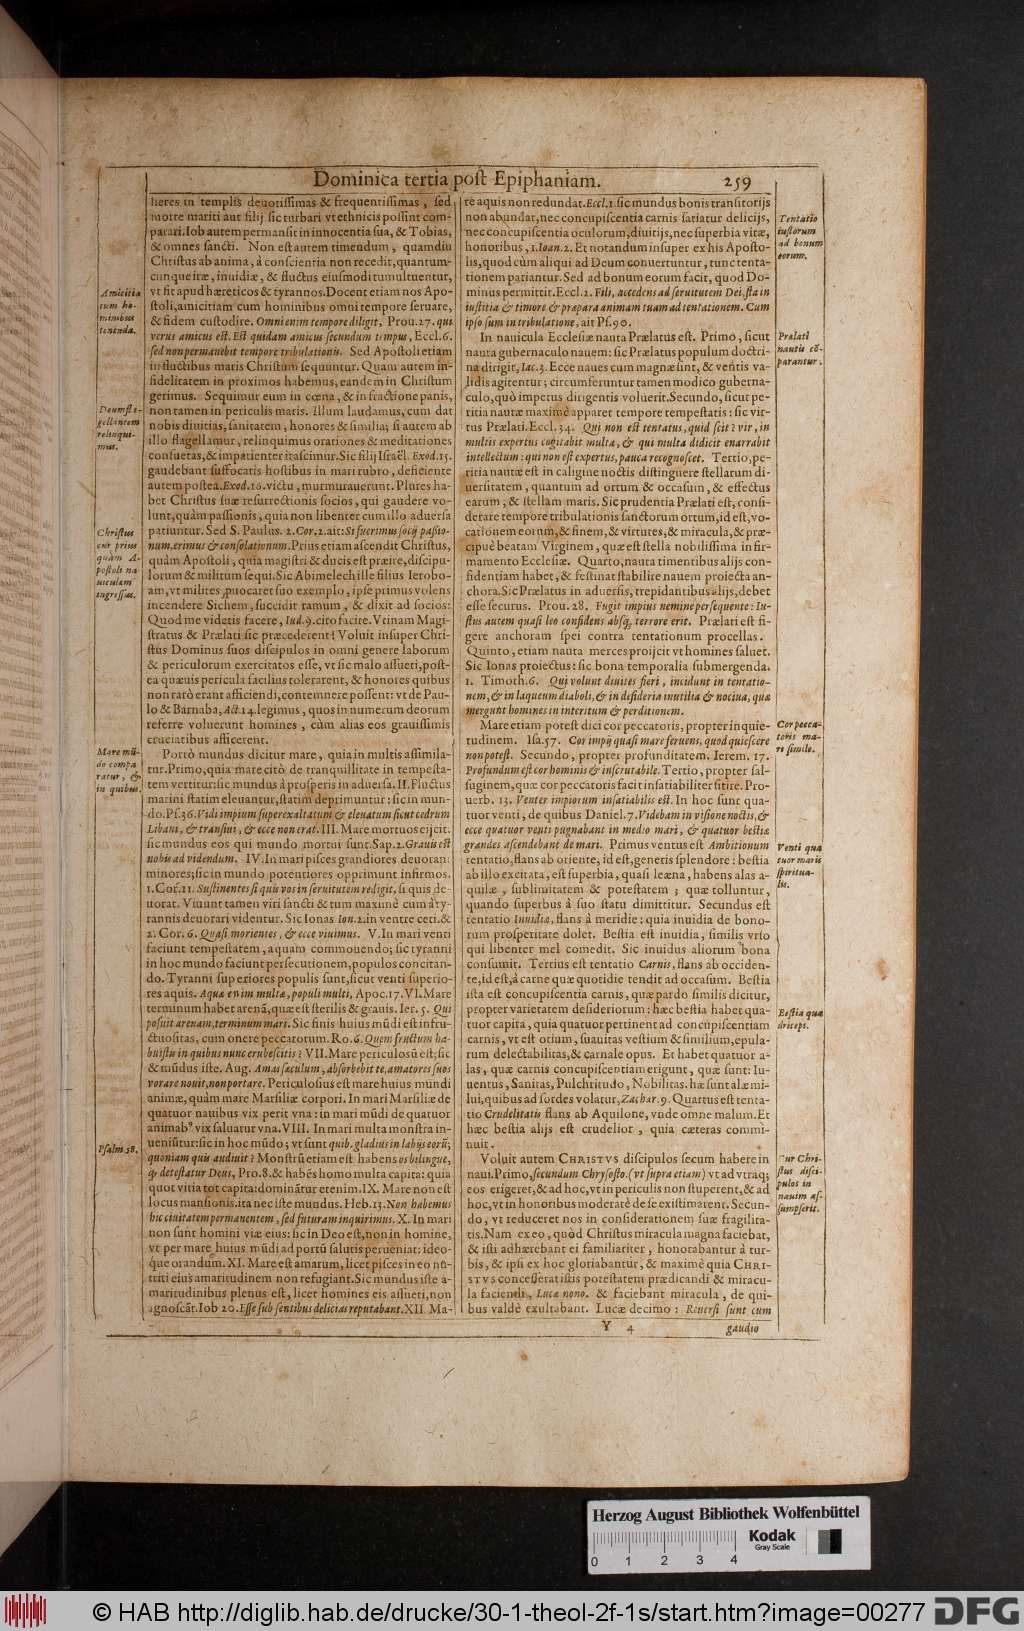 Dominica tertia post Epiphaniam. 259
lieres in templis deuotissimas & frequentissimas, sed
morte mariti aut filij sic turbari vt ethnicis possint com-
parari. Iob autem permansit in innocentia sua, & Tobias,
& omnes sancti. Non est autem timendum, quamdiu
Christus ab anima, à conscientia non recedit, quantum-
cunque iræ, inuidiæ, & fluctus eiusmodi tumultuentur,
vt fit apud hæreticos & tyrannos. Docent etiam nos Apo-
stoli, amicitiam cum hominibus omni tempore seruare,
& fidem custodire. Omni enim tempore diligit, Prou. 17. qui
verus amicus est. Est quidam amicus secundum tempus, Eccl. 6.
sed non permanebit tempore tribulationis. Sed Apostoli etiam
in fluctibus maris Christum sequuntur. Quam autem in-
fidelitatem in proximos habemus, eandem in Christum
gerimus. Sequimur eum in cœna, & in fractione panis,
non tamen in periculis maris. Illum laudamus, cum dat
nobis diuitias, sanitatem, honores & similia; si autem ab
illo flagellamur, relinquimus orationes & meditationes
consuetas, & impatienter irascimur. Sic filij Israël. Exod. 15.
gaudebant suffocatis hostibus in mari rubro, deficiente
autem postea. Exod. 16. victu, murmurauerunt. Plures ha-
bet Christus suæ resurrectionis socios, qui gaudere vo-
lunt, quàm passionis, quia non libenter cum illo aduersa
patiuntur. Sed S. Paulus. 2. Cor. 2. ait: Si fuerimus socij passio-
num, erimus & consolationum. Prius etiam ascendit Christus,
quàm Apostoli, quia magistri & ducis est præire, discipu-
lorum & militum sequi. Sic Abimelech ille filius Ierobo-
am, vt milites, prouocaret suo exemplo, ipse primus volens
incendere Sichem, succidit ramum, & dixit ad socios:
Quod me videtis facere, Iud. 9. cito facite. Vtinam Magi-
stratus & Prælati sic præcederent! Voluit insuper Chri-
stus Dominus suos discipulos in omni genere laborum
& periculorum exercitatos esse, vt sic malo assueti, post-
ea quæuis pericula facilius tolerarent, & honores quibus
non rarò erant afficiendi, contemnere possent: vt de Pau-
lo & Barnaba, Act. 14. legimus, quos in numerum deorum
referre voluerunt homines, cùm alias eos grauissimis
cruciatibus afficerent.
Porrò mundus dicitur mare, quia in multis assimila-
tur. Primo, quia mare citò de tranquillitate in tempesta-
tem vertitur: sic mundus à prosperis in aduersa. II. Fluctus
marini statim eleuantur, statim deprimuntur: sic in mun-
do. Ps. 36. Vidi impium superexaltatum & eleuatum sicut cedrum
Libani, & transiui, & ecce non erat. III. Mare mortuos eijcit.
sic mundus eos qui mundo mortui sunt. Sap. 2. Grauis est
nobis ad videndum. IV. In mari pisces grandiores deuorant
minores; sic in mundo potentiores opprimunt infirmos.
1. Cor. 11. Sustinentes si quis vos in seruitutem redigit, si quis de-
uorat. Viuunt tamen viri sancti & tum maximè cum à ty-
rannis deuorari videntur. Sic Ionas Ion. 2. in ventre ceti. &
2. Cor. 6. Quasi morientes, & ecce viuimus. V. In mari venti
faciunt tempestatem, aquam commouendo; sic tyranni
in hoc mundo faciunt persecutionem, populos concitan-
do. Tyranni superiores populis sunt, sicut venti superio-
res aquis. Aquæ enim multæ, populi multi, Apoc. 17. VI. Mare
terminum habet arenã, quæ est sterilis & grauis. Ier. 5. Qui
posuit arenam, terminum mari. Sic finis huius mũdi est infru-
ctuositas, cum onere peccatorum. Ro. 6. Quem fructum ha-
buistis in quibus nunc erubescitis? VII. Mare periculosũ est; sic
& mũdus iste. Aug. Amas sæculum, absorbebit te, amatores suos
vorare nouit, non portare. Periculosius est mare huius mundi
animæ, quàm mare Marsiliæ corpori. In mari Marsiliæ de
quatuor nauibus vix perit vna: in mari mũdi de quatuor
animab9 vix saluatur vna. VIII. In mari multa monstra in-
ueniũtur: sic in hoc mũdo; vt sunt quib. gladius in labijs eorũ;
quoniam quis audiuit? Monstrũ etiam est habens os bilingue,
& detestatur Deus, Pro. 8. & habẽs homo multa capita: quia
quot vitia tot capita: dominãtur etenim. IX. Mare non est
locus mansionis. ita nec iste mundus. Heb. 13. Non habemus
hic ciuitatem permanentem, sed futuram inquirimus. X. In mari
non sunt homini viæ eius: sic in Deo est, non in homine,
vt per mare huius mũdi ad portũ salutis perueniat: ideo-
que orandum. XI. Mare est amarum, licet pisces in eo nu-
triti eius amaritudinem non refugiant. Sic mundus iste a-
maritudinibus plenus est, licet homines eis assueti, non
agnoscãt. Iob 20. Esse sub sentibus delicias reputabant. XII Ma-
re aquis non redundat. Eccl. 1 sic mundus bonis transitorijs
non abundat, nec concupiscentia carnis satiatur delicijs,
nec concupiscentia oculorum, diuitijs, nec superbia vitæ,
honoribus, 1. Ioan. 2. Et notandum insuper ex his Aposto-
lis, quod cùm aliqui ad Deum conuertuntur, tunc tenta-
tionem patiantur. Sed ad bonum eorum facit, quod Do-
minus permittit. Eccl. 2. Fili, accedens ad seruitutem Dei, sta in
iustitia & timore & præpara animam tuam ad tentationem. Cum
ipso sum in tribulatione, ait Ps. 90.
In nauicula Ecclesiæ nauta Prælatus est. Primo, sicut
nauta gubernaculo nauem: sic Prælatus populum doctri-
na dirigit, Iac. 3. Ecce naues cum magnæ sint, & ventis va-
lidis agitentur; circumferuntur tamen modico guberna-
culo, quò impetus dirigentis voluerit. Secundo, sicut pe-
ritia nautæ maximè apparet tempore tempestatis: sic vir-
tus Prælati. Eccl. 34. Qui non est tentatus, quid scit? vir, in
multis expertus cogitabit multa, & qui multa didicit enarrabit
intellectum: qui non est expertus, pauca recognoscet. Tertio, pe-
ritia nautæ est in caligine noctis distinguere stellarum di-
uersitatem, quantum ad ortum & occasum, & effectus
earum, & stellam maris. Sic prudentia Prælati est, consi-
derare tempore tribulationis sanctorum ortum, id est, vo-
cationem eorum, & finem, & virtutes, & miracula, & præ-
cipuè beatam Virginem, quæ est stella nobilissima in fir-
mamento Ecclesiæ. Quarto, nauta timentibus alijs con-
fidentiam habet, & festinat stabilire nauem proiecta an-
chora. Sic Prælatus in aduersis, trepidantibus alijs, debet
esse securus. Prou. 28. Fugit impius nemine persequente: Iu-
stus autem quasi leo confidens absq; terrore erit. Prælati est fi-
gere anchoram spei contra tentationum procellas.
Quinto, etiam nauta merces proijcit vt homines saluet.
Sic Ionas proiectus: sic bona temporalia submergenda.
1. Timoth. 6. Qui volunt diuites fieri, incidunt in tentatio-
nem, & in laqueum diaboli, & in desideria inutilia & nociua, quæ
mergunt homines in interitum & perditionem.
Mare etiam potest dici cor peccatoris, propter inquie-
tudinem. Isa. 57. Cor impij quasi mare feruens, quod quiescere
non potest. Secundo, propter profunditatem. Ierem. 17.
Profundum est cor hominis & inscrutabile. Tertio, propter sal-
suginem, quæ cor peccatoris facit insatiabiliter sitire. Pro-
uerb. 13. Venter impiorum insatiabilis est. In hoc sunt qua-
tuor venti, de quibus Daniel. 7. Videbam in visione noctis, &
ecce quatuor venti pugnabant in medio mari, & quatuor bestiæ
grandes ascendebant de mari. Primus ventus est Ambitionum
tentatio, flans ab oriente, id est, generis splendore: bestia
ab illo excitata, est superbia, quasi leæna, habens alas a-
quilæ, sublimitatem & potestatem; quæ tolluntur,
quando superbus à suo statu dimittitur. Secundus est
tentatio Inuidiæ, flans à meridie: quia inuidia de bono-
rum prosperitate dolet. Bestia est inuidia, similis vrso
qui libenter mel comedit. Sic inuidus aliorum bona
consumit. Tertius est tentatio Carnis, flans ab occiden-
te, id est, à carne quæ quotidie tendit ad occasum. Bestia
ista est concupiscentia carnis, quæ pardo similis dicitur,
propter varietatem desideriorum: hæc bestia habet qua-
tuor capita, quia quatuor pertinent ad concupiscentiam
carnis, vt est otium, suauitas vestium & similium, epula-
rum delectabilitas, & carnale opus. Et habet quatuor a-
las, quæ carnis concupiscentiam erigunt, quæ sunt: Iu-
uentus, Sanitas, Pulchritudo, Nobilitas. hæ sunt alæ mi-
lui, quibus ad sordes volatur, Zachar. 9. Quartus est tenta-
tio Crudelitatis flans ab Aquilone, vnde omne malum. Et
hæc bestia alijs est crudelior, quia cæteras commi-
nuit.
Voluit autem CHRISTVS discipulos secum habere in
naui. Primo, secundum Chrysosto. (vt supra etiam) vt ad vtraq;
eos erigeret, & ad hoc, vt in periculis non stuperent, & ad
hoc, vt in honoribus moderatè de se existimarent. Secun-
do, vt reduceret nos in considerationem suæ fragilita-
tis. Nam ex eo, quòd Christus miracula magna faciebat,
& isti adhærebant ei familiariter, honorabantur à tur-
bis, & ipsi ex hoc gloriabantur, & maximè quia CHRI-
STVS concesserat istis potestatem prædicandi & miracu-
la faciendi, Lucæ nono. & faciebant miracula, de qui-
bus valdè exultabant. Lucæ decimo: Reuersi sunt cum
Y 4 gaudio
Amicitia
cum ho-
minibus
tenenda.
Deum fla-
gellantem
relinqui-
mus.
Christus
cur prius
quàm A-
postoli na
uiculam
ingressus.
Mare mũ-
do compa
ratur, &
in quibus.
Psalm 58.
Tentatio
iustorum
ad bonum
eorum.
Prælati
nautis cõ-
parantur.
Cor pecca-
toris ma-
ri simile.
Venti qua
tuor maris
spiritua-
lis.
Bestia qua
driceps.
Cur Chri-
stus disci-
pulos in
nauim as-
sumpserit.
Herzog August Bibliothek Wolfenbüttel
Kodak
Gray Scale
0 1 2 3 4
© HAB http://diglib.hab.de/drucke/30-1-theol-2f-1s/start.htm?image=00277
DFG